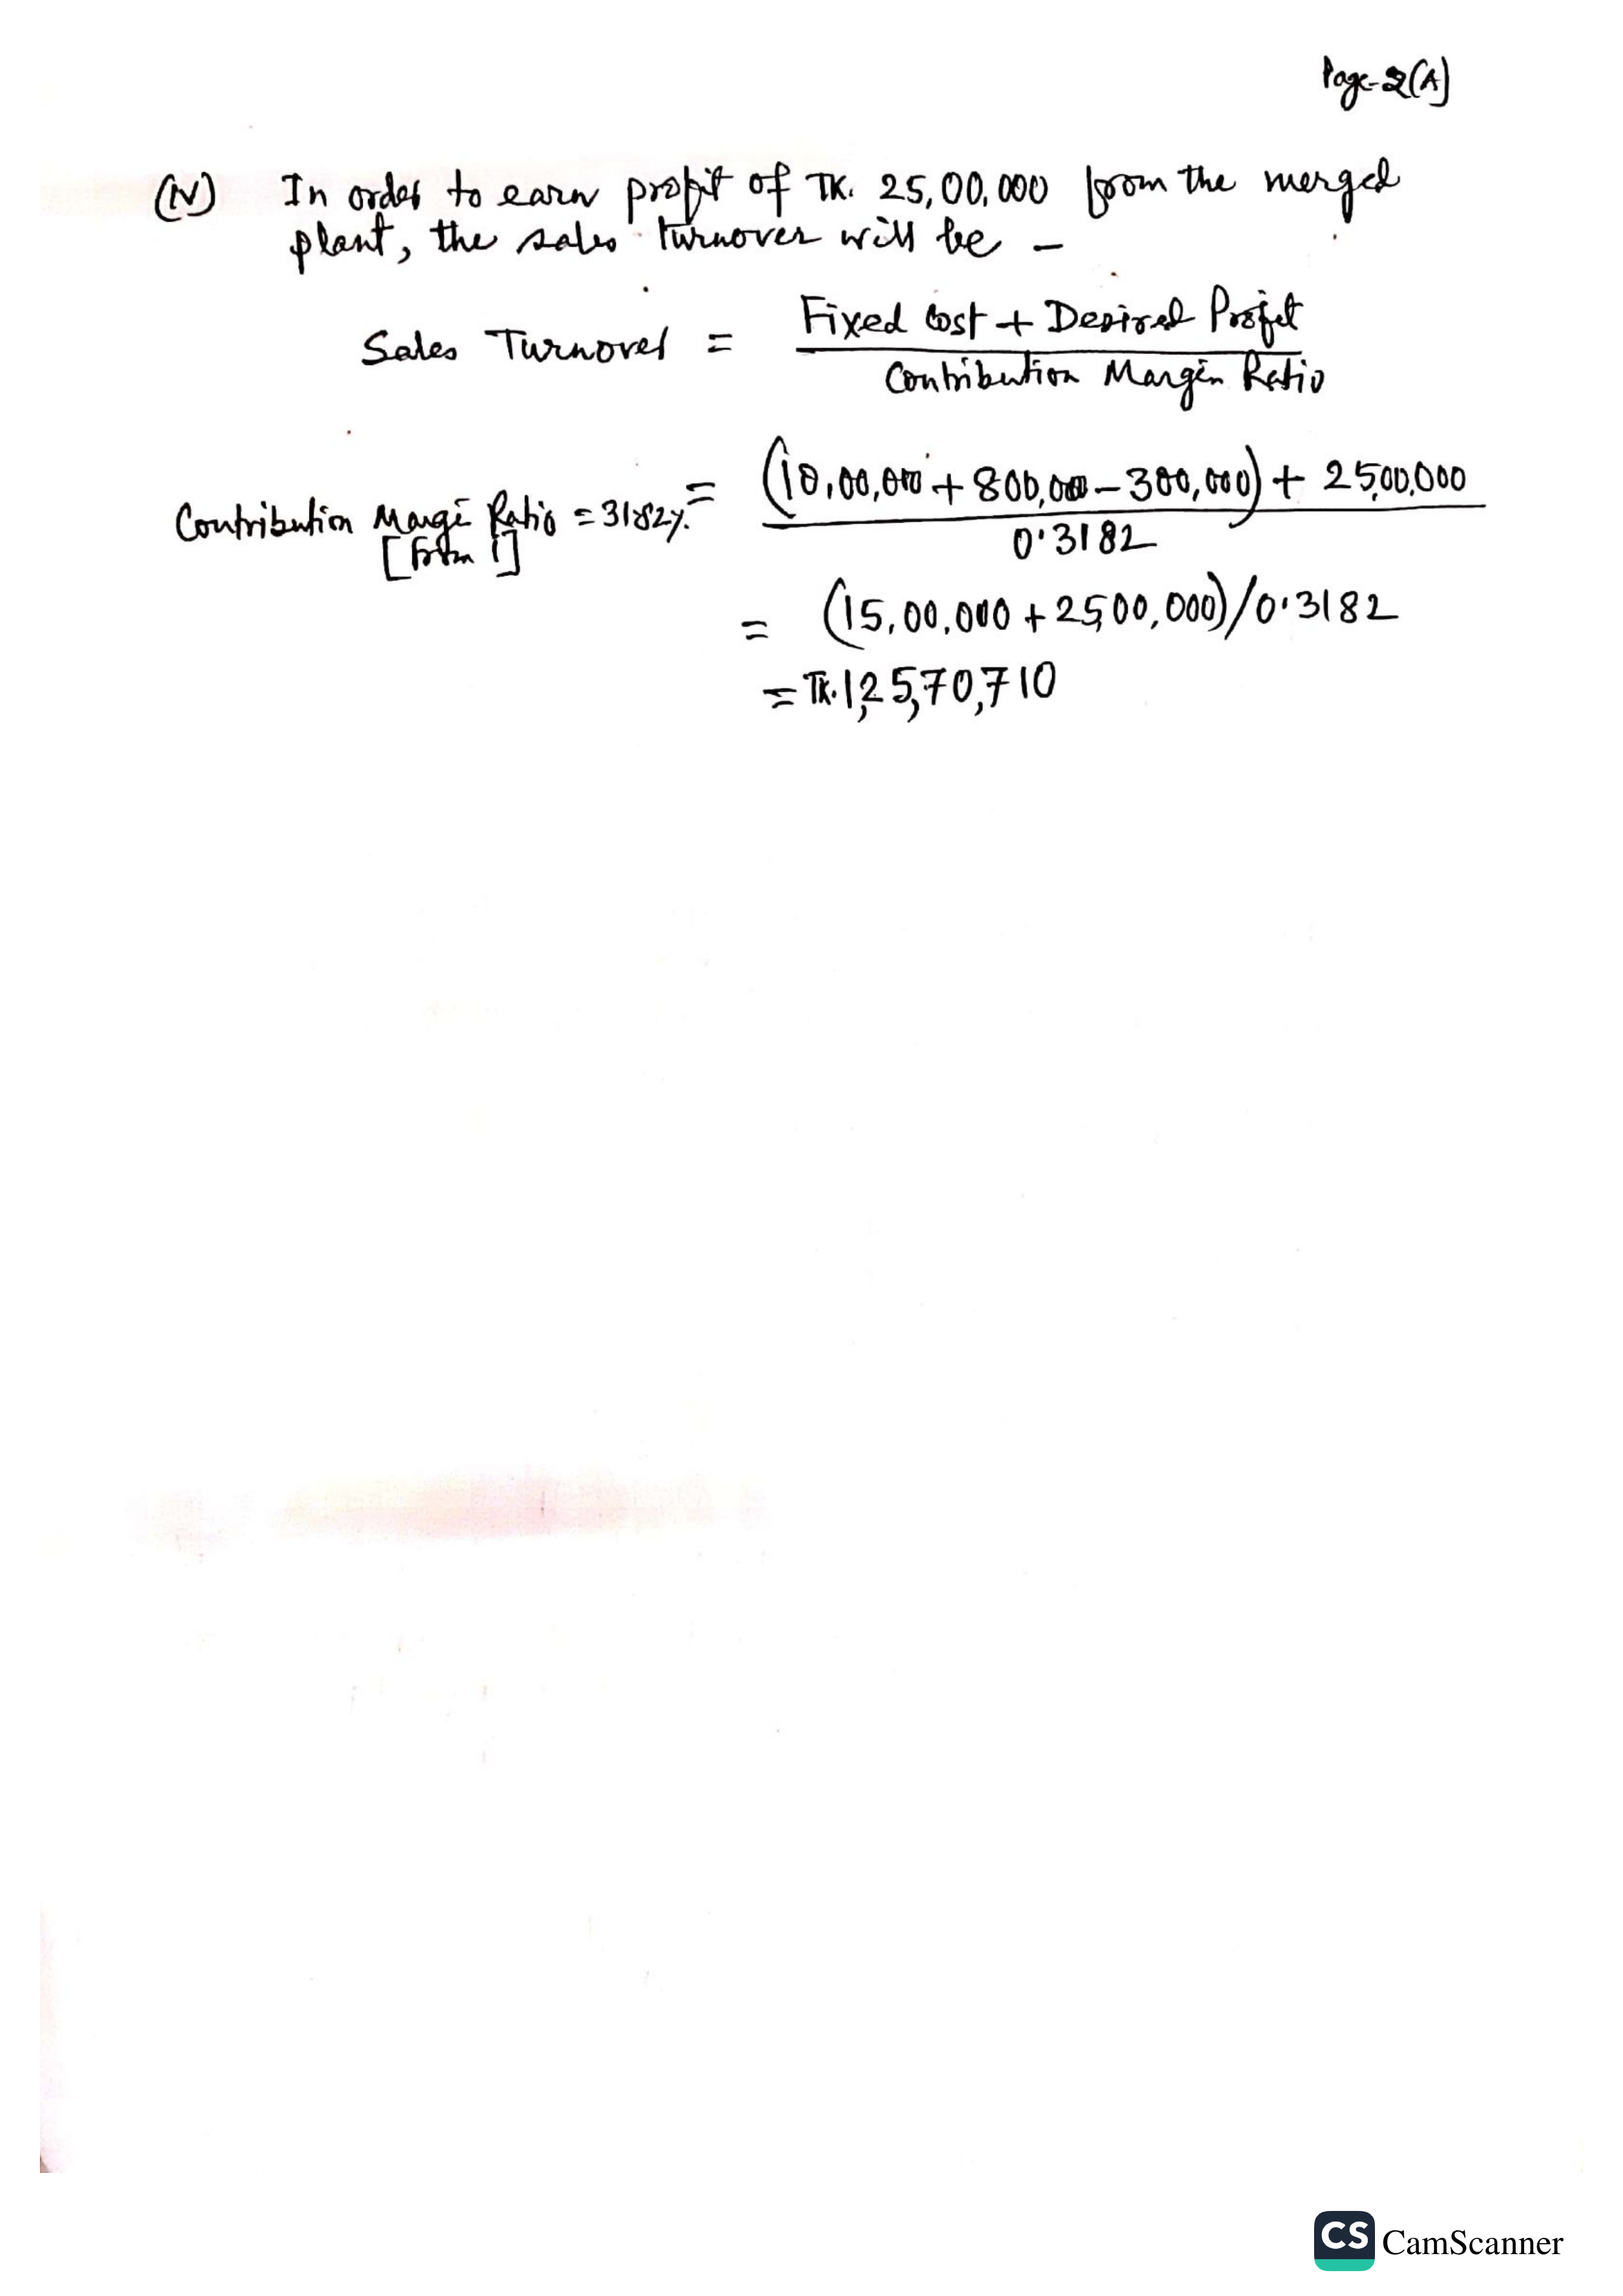 Page-2(A)
(iv) In order to earn profit of TK. 25,00,000 from the merged
plant, the sales turnover will be –
Sales Turnover = Fixed Cost + Desired Profit
Contribution Margin Ratio
Contribution Margi Ratio = 31.82% = (10,00,000 + 800,000 – 300,000) + 25,00,000
[From 1]
0.3182
= (15,00,000 + 25,00,000)/0.3182
= TK. 1,25,70,710
CS CamScanner